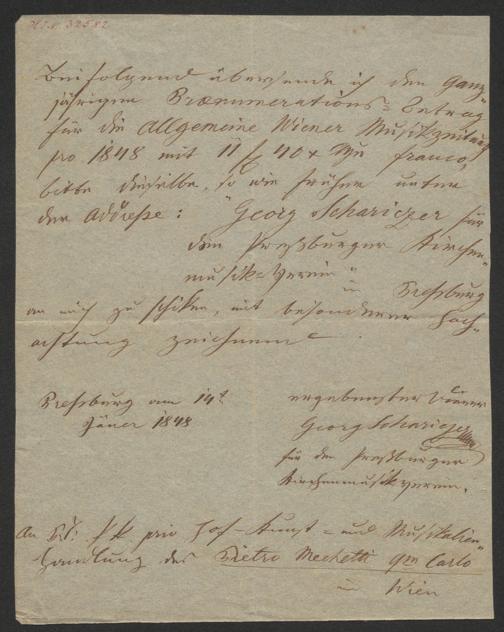 H.I.N. 32582
Beifolgend übersende ich den ganz-
jährigen Praenumerations=Betrag
für die Allgemeine Wiener Musikzeitung
pro 1848 mit 11 f 40 x franco,
bitte dieselbe, so wie früher unter
der Addreße: "Georg Schariczer für
den Preßburger Kirchen-
musik=Verein" in Pressburg
an mich zu schiken, mit besonderer Hoch-
achtung zeichnend
Pressburg am 14t
Jäner 1848
ergebenster Diener
Georg Schariczer
für den Preßburger
Kirchenmusikverein.
An k. k. priv Hof-Kunst= und Musikalien-
handlung des Pietro Mechetti qm Carlo
in Wien